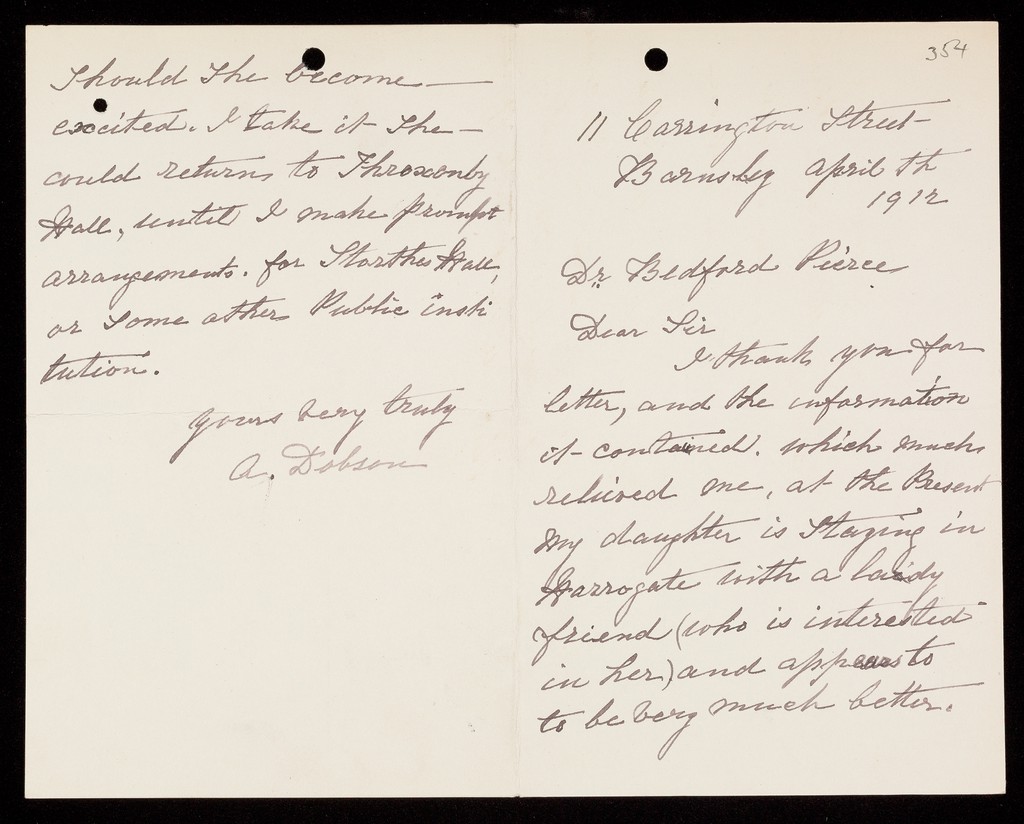 354
11 Carrington Street
Barnsley April th
1912
Dr Bedford Pierce
Dear Sir
I thank you for
letter, and the information
it contained. which much
relieved me, at the Present
my daughter is Staying in
Harrogate with a laidy
friend (who is interested
in her) and appears to
to be very much better.
Should She become
excited. I take it She
could return to Throxenby
Hall, until I make prompt
arrangements. for Storthes Hall,
or Some other Public insti
tution.
yours very truly
A. Dobson